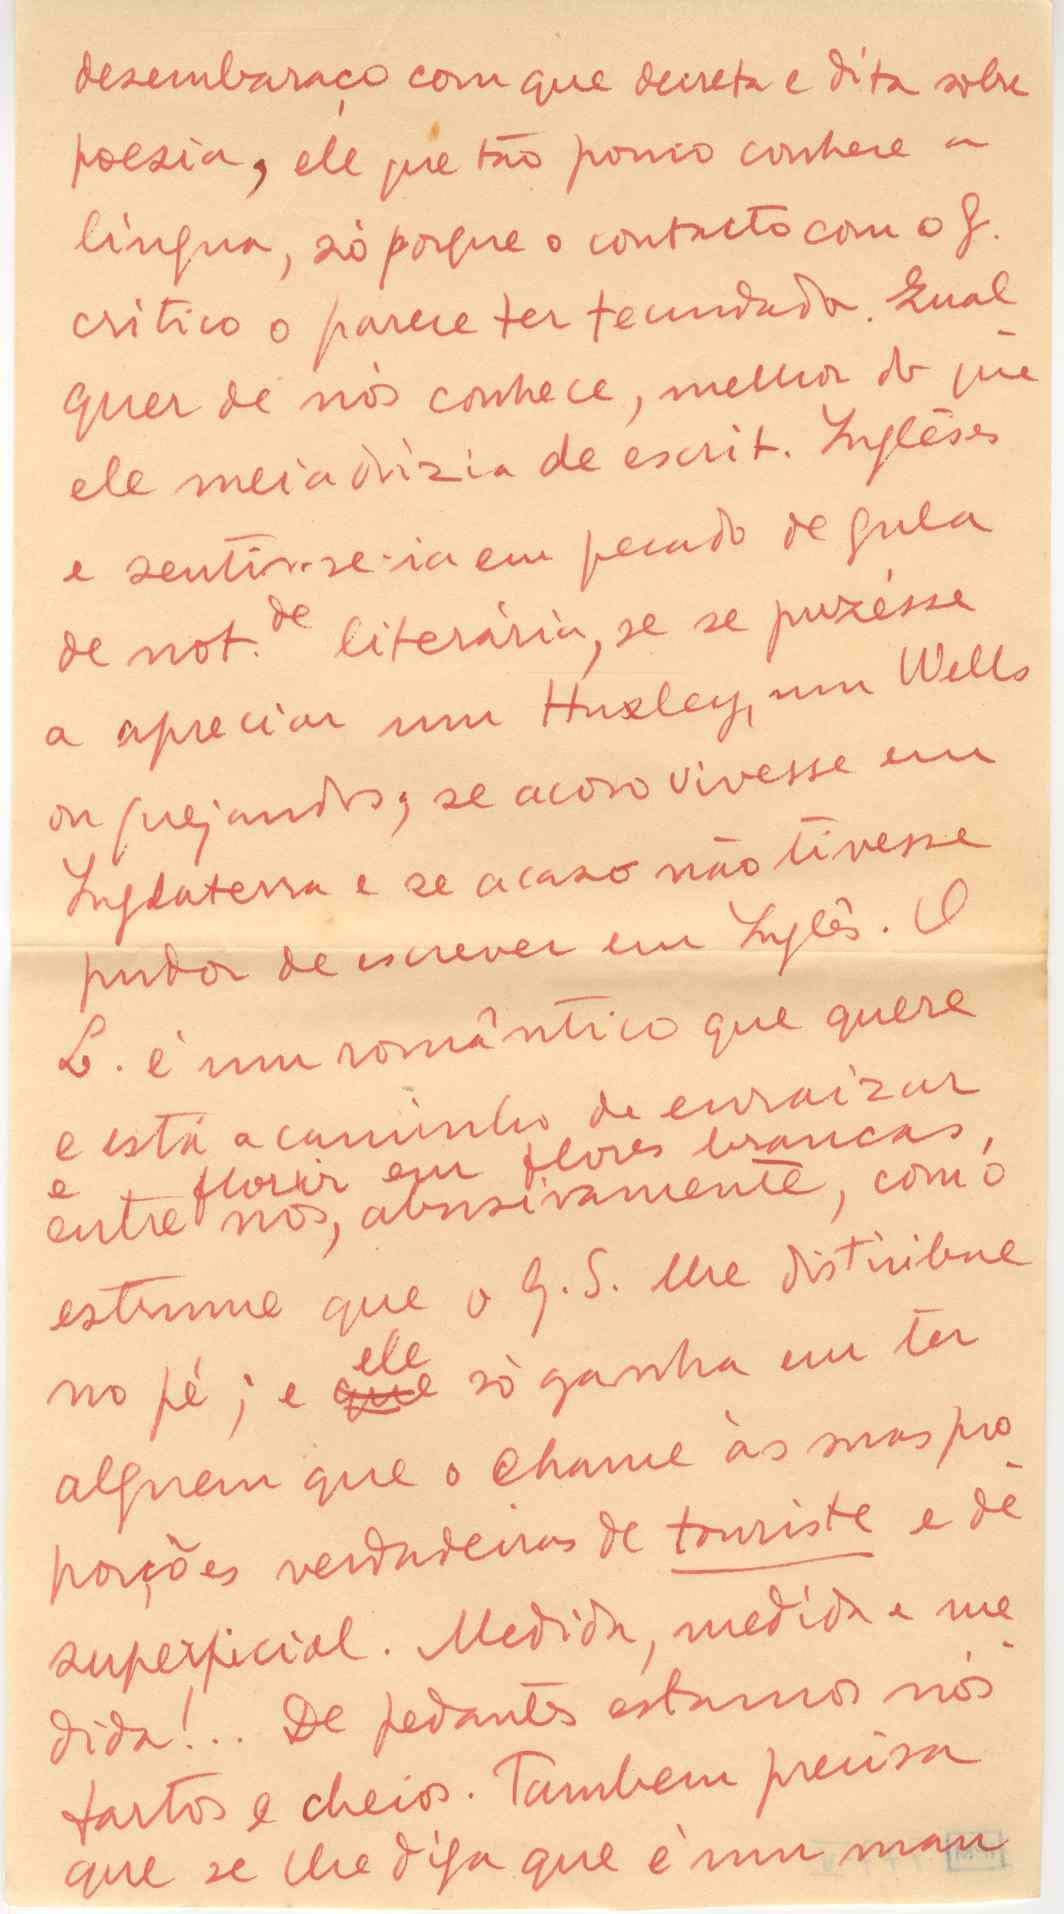 desembaraço com que decreta e dita sobre
poesia, ele que tão pouco conhece a
língua, só porque o contacto com o G.
critico o parece ter fecundado. Qual
quer de nós conhece, melhor do que
ele meia duzia de escrit. Inglêses
e sentir-se-ia em pecado de gula
de not.de literária, se se puzésse
a apreciar um Huxley, um Wells
ou quejandos, se acaso vivesse em
Inglaterra e se acaso não tivesse
pudor de escrever em Inglês. O
L. é um romântico que quere
e está a caminho de enraizar
e florir em flores brancas,
entre nós, abusivamente, com o
estrume que o G. S. lhe distribue
no pé; e que ele só ganha em ter
alguem que o chame às suas pro
porções verdadeiras de touriste e de
superficial. Medida, medida e me
dida!... De pedantes estamos nós
fartos e cheios. Tambem precisa
que se lhe diga que é um mau